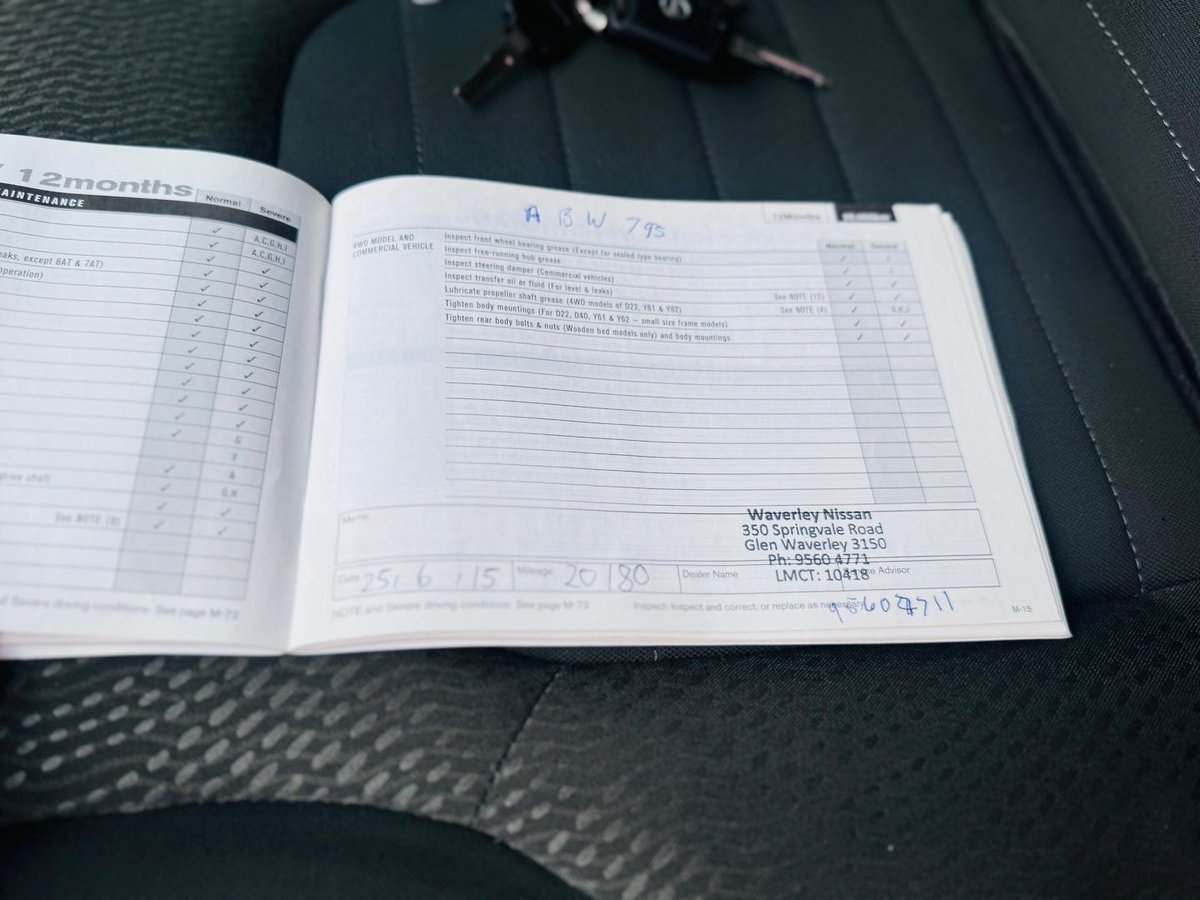 12months
AINTENANCE
Normal
Severe
A,C,G,H,I
eaks, except 6AT & 7AT)
A,C,G,H,I
operation)
G
F
A
shaft
G,H
See NOTE (9)
and Severe driving conditions. See page M-72
A B W 795
12Months
Normal
Severe
4WD MODEL AND
COMMERCIAL VEHICLE
Inspect front wheel bearing grease (Except for sealed type bearing)
Inspect free-running hub grease
Inspect steering damper (Commercial vehicles)
Inspect transfer oil or fluid (For level & leaks)
See NOTE (12)
Lubricate propeller shaft grease (4WD models of D22, Y61 & Y62)
See NOTE (4)
G,H,I
Tighten body mountings (For D22, D40, Y61 & Y62 – small size frame models)
Tighten rear body bolts & nuts (Wooden bed models only) and body mountings
Memo
Waverley Nissan
350 Springvale Road
Glen Waverley 3150
Ph: 9560 4771
LMCT: 10418
Date 25, 6, 15
Mileage 20180
Dealer Name
Advisor
NOTE and Severe driving conditions. See page M-72
Inspect: Inspect and correct, or replace as necessary
95604711
M-15